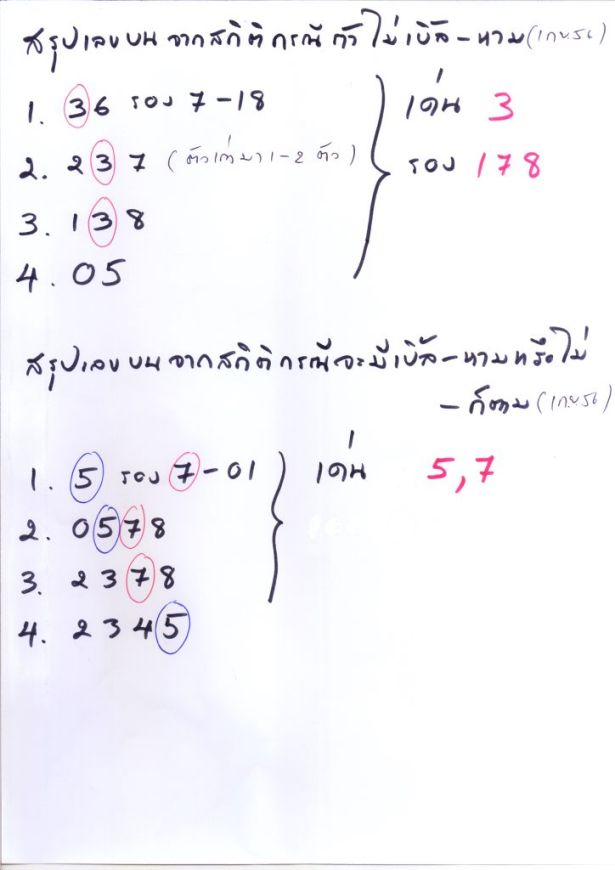 สรุปเลขบน จากสถิติกรณี ถ้า ไม่เบิ้ล - หาม (เมษ56)
1. 36 รอง 7-18
2. 237 (ตัวเก่ามา 1-2 ตัว)
3. 138
4. 05
เด่น 3
รอง 178
สรุปเลขบน จากสถิติกรณีจะมีเบิ้ล - หามหรือไม่
- ก็ตาม (เมษ56)
1. 5 รอง 7-01
2. 0578
3. 2378
4. 2345
เด่น 5,7